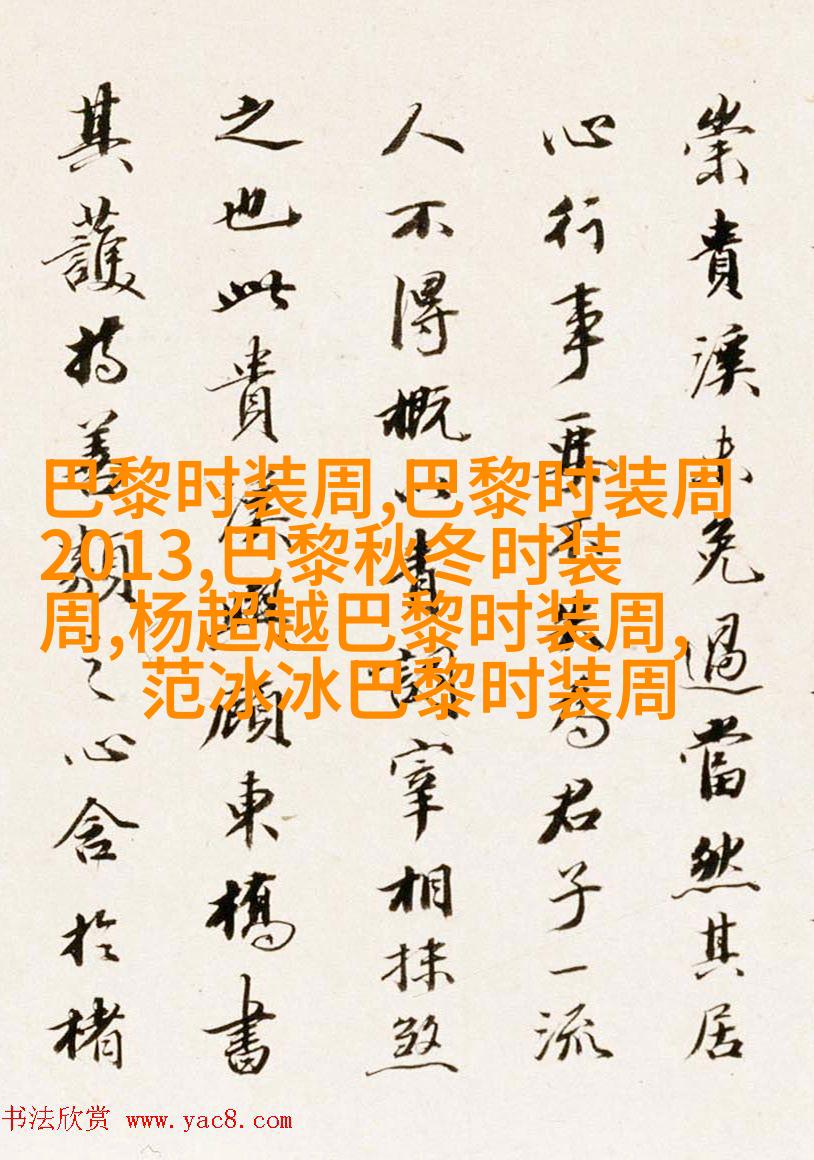 崇貴溪未免過當然其居
心行事要不失為君子一流
人不得概以青詞宰相抹煞
之也此貴溪與顧東橋書
其護持善類之心含於楮
巴黎时装周,巴黎时装周
2013,巴黎秋冬时装
周,杨超越巴黎时装周,
范冰冰巴黎时装周
书法欣赏 www.yac8.com